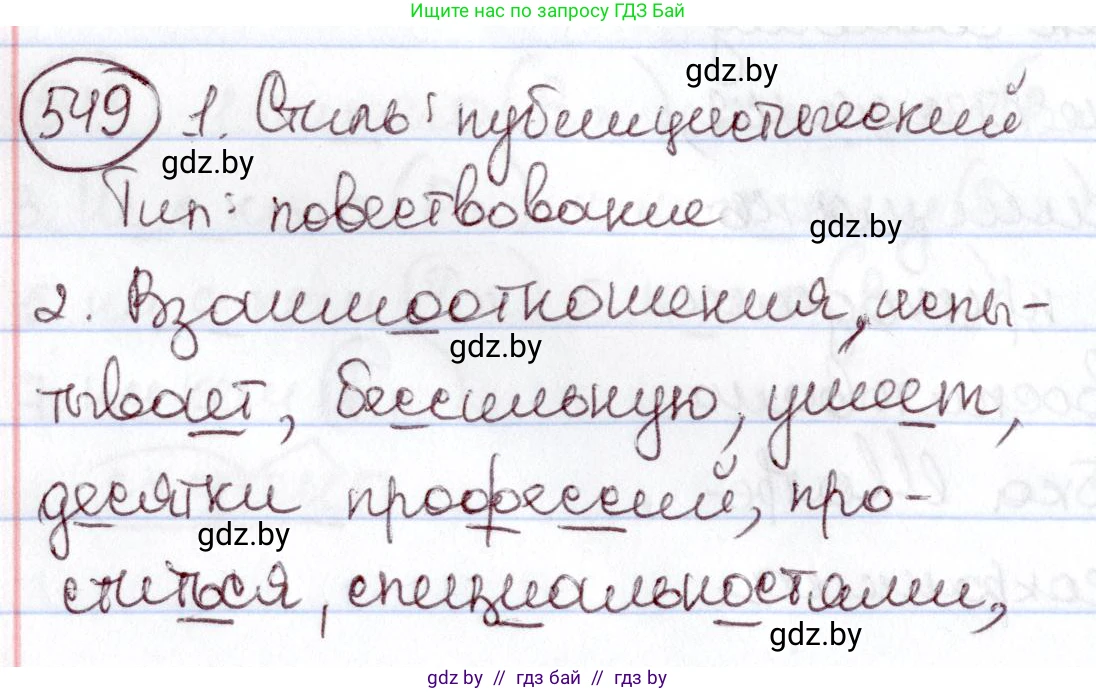 Ищите нас по запросу ГДЗ Бай
gdz.by
549 1. Стиль: публицистический
gdz.by
Тип: повествование
gdz.by
2. Взаимоотношения, испы-
gdz.by
тывает, бессильную, умеет,
десятки профессий, про-
gdz.by
ститься, специальностями,
gdz.by
gdz by // gdz бай // gdz by